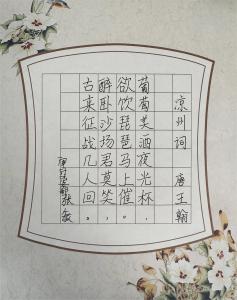 凉州词
唐 王翰
葡萄美酒夜光杯
欲饮琵琶马上催
醉卧沙场君莫笑
古来征战几人回